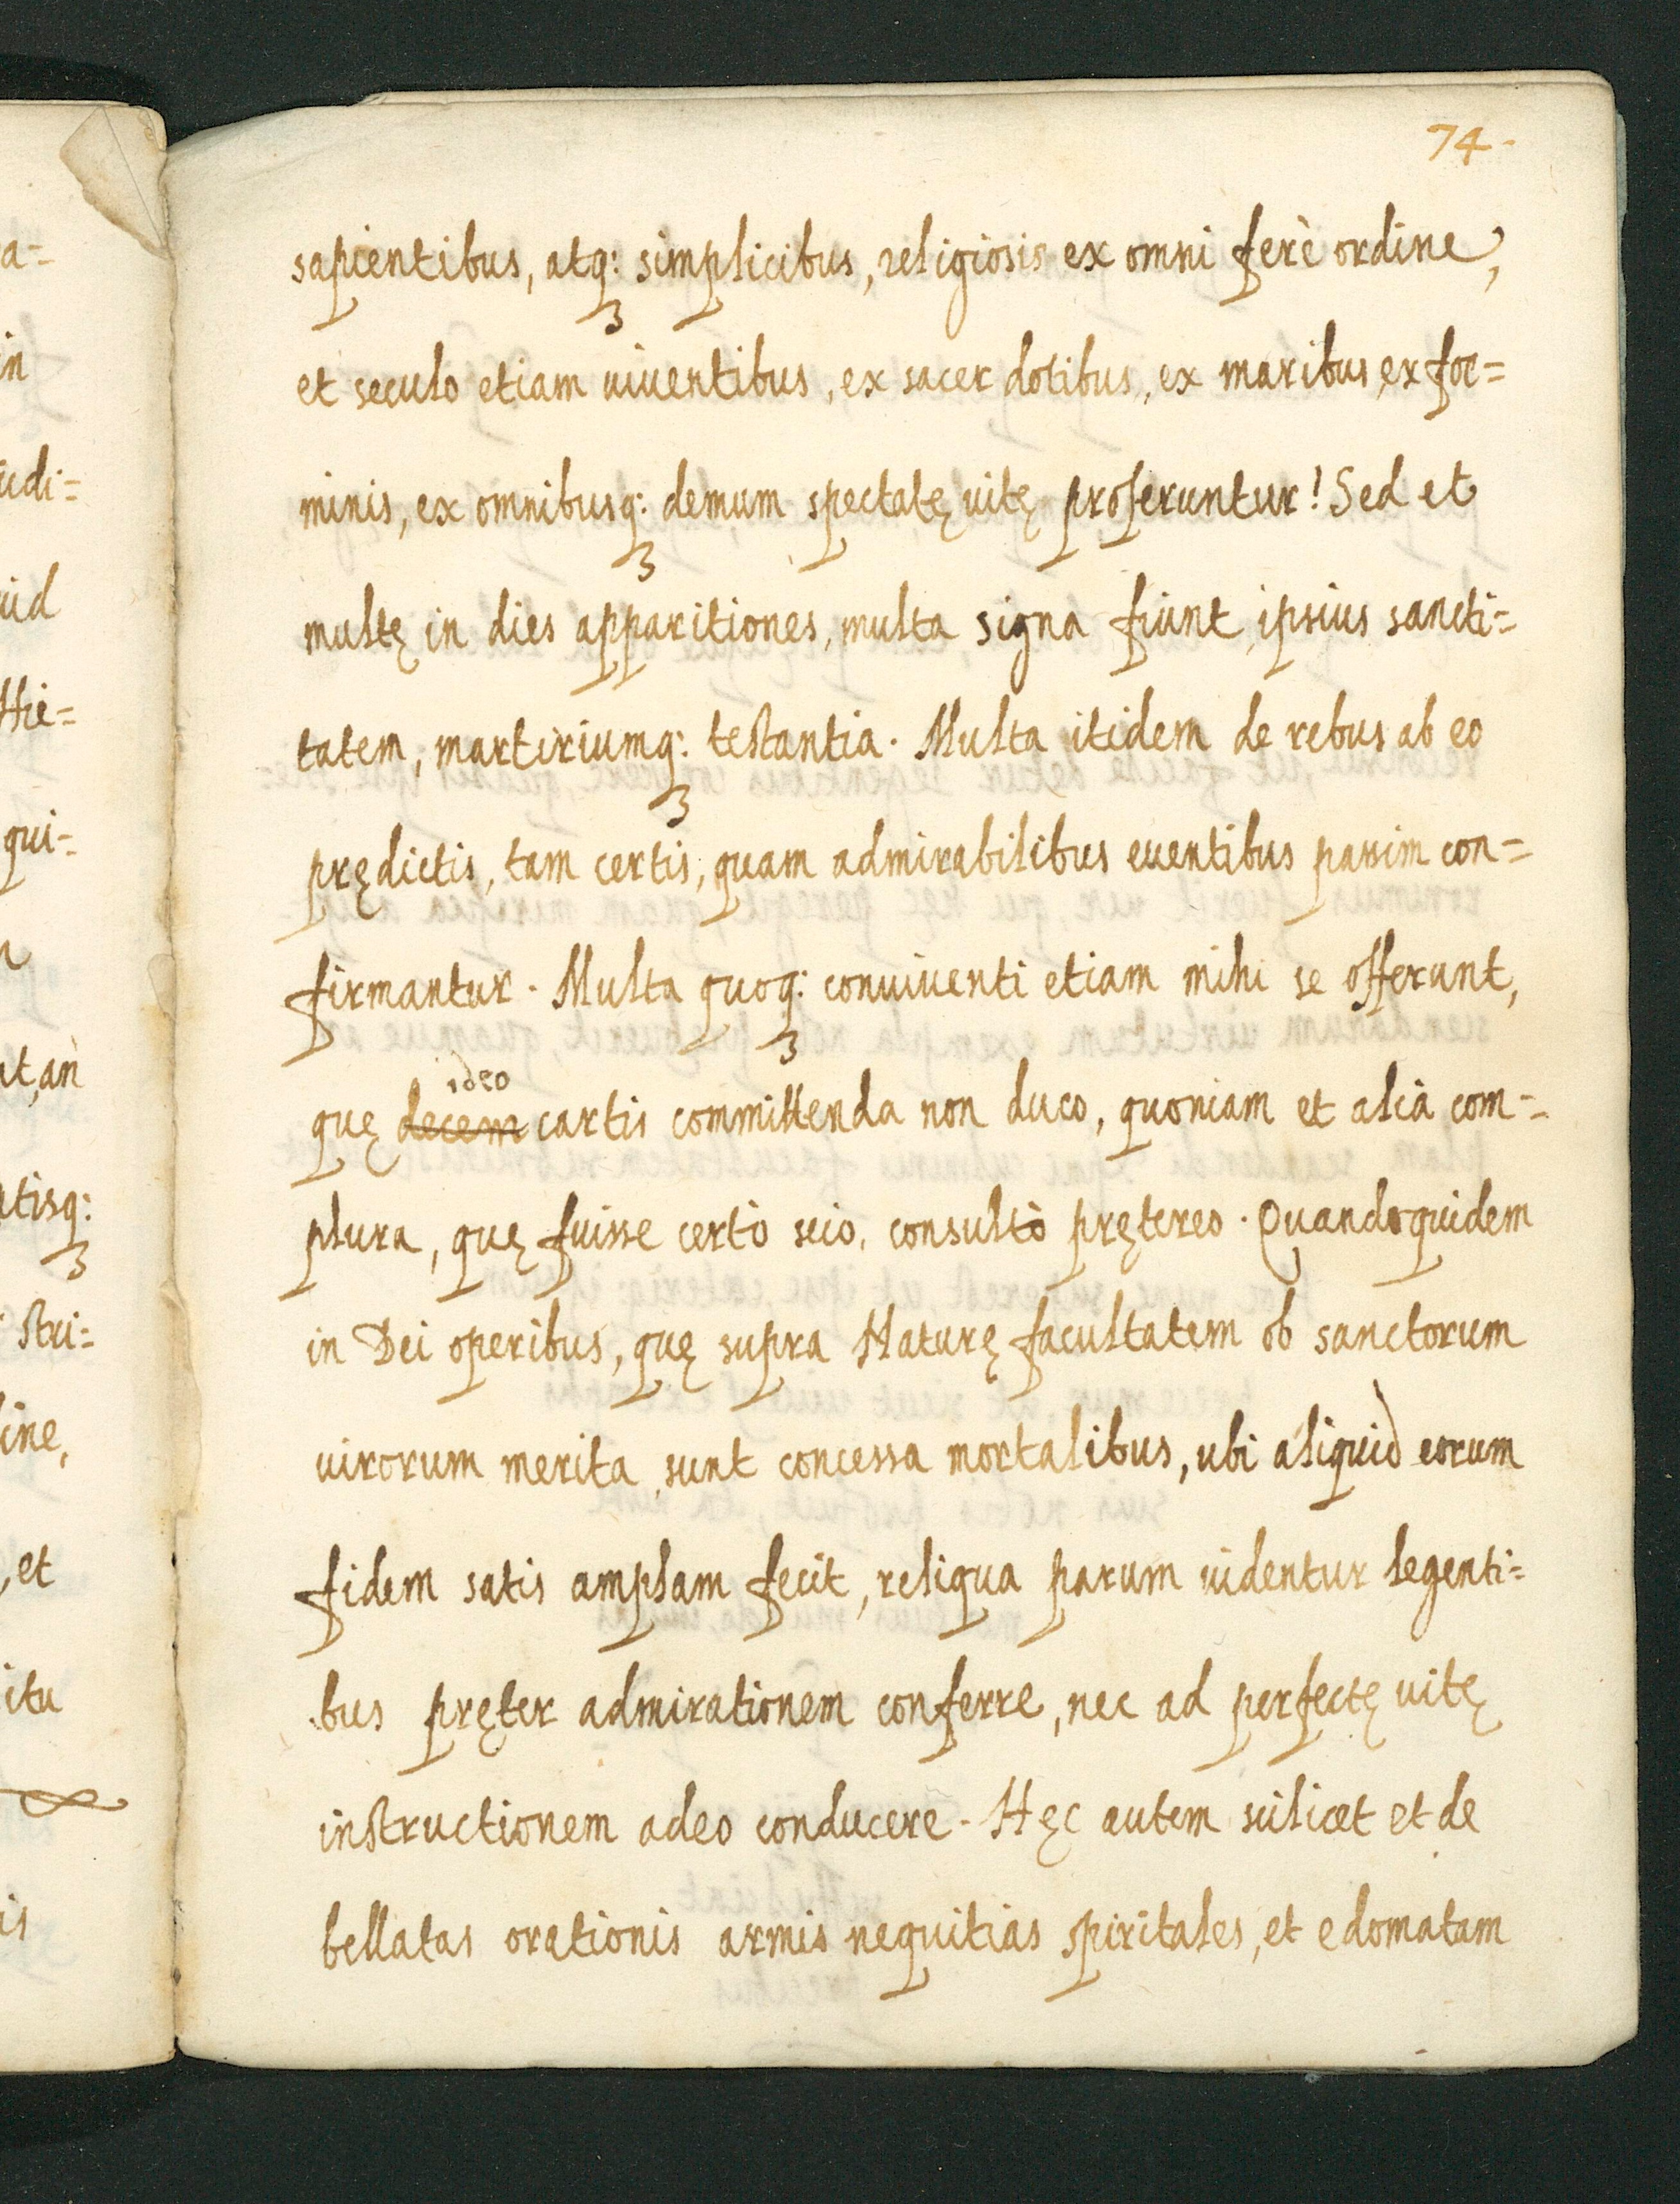 74-
sapientibus, atq: simplicibus, religiosis ex omni ferè ordine,
et seculo etiam uiuentibus, ex sacer dotibus, ex maribus, ex foe=
minis, ex omnibusq: demum spectatę uitę proferuntur! Sed et
multę in dies apparitiones, multa signa fiunt, ipsius sancti=
tatem, martiriumq: testantia. Multa itidem de rebus ab eo
prędictis, tam certis, quam admirabilibus euentibus passim con=
firmantur. Multa quoq: conuiuenti etiam mihi se offerunt,
ideo
quę decem cartis committenda non duco, quoniam et alià com=
plura, quę fuisse certò scio, consultò prętereo. Quandoquidem
in Dei operibus, quę supra Naturę facultatem ob sanctorum
uirorum merita, sunt concessa mortalibus, ubi aliquid eorum
fidem satis amplam fecit, reliqua parum uidentur legenti=
bus pręter admirationem conferre, nec ad perfectę uitę
instructionem adeo conducere. Hęc autem scilicet et de
bellatas orationis armis nequitias spiritales, et edomatam
a=
in
udi=
uid
Hie=
qui=
at, an
atisq:
stri=
ine,
, et
itu
is